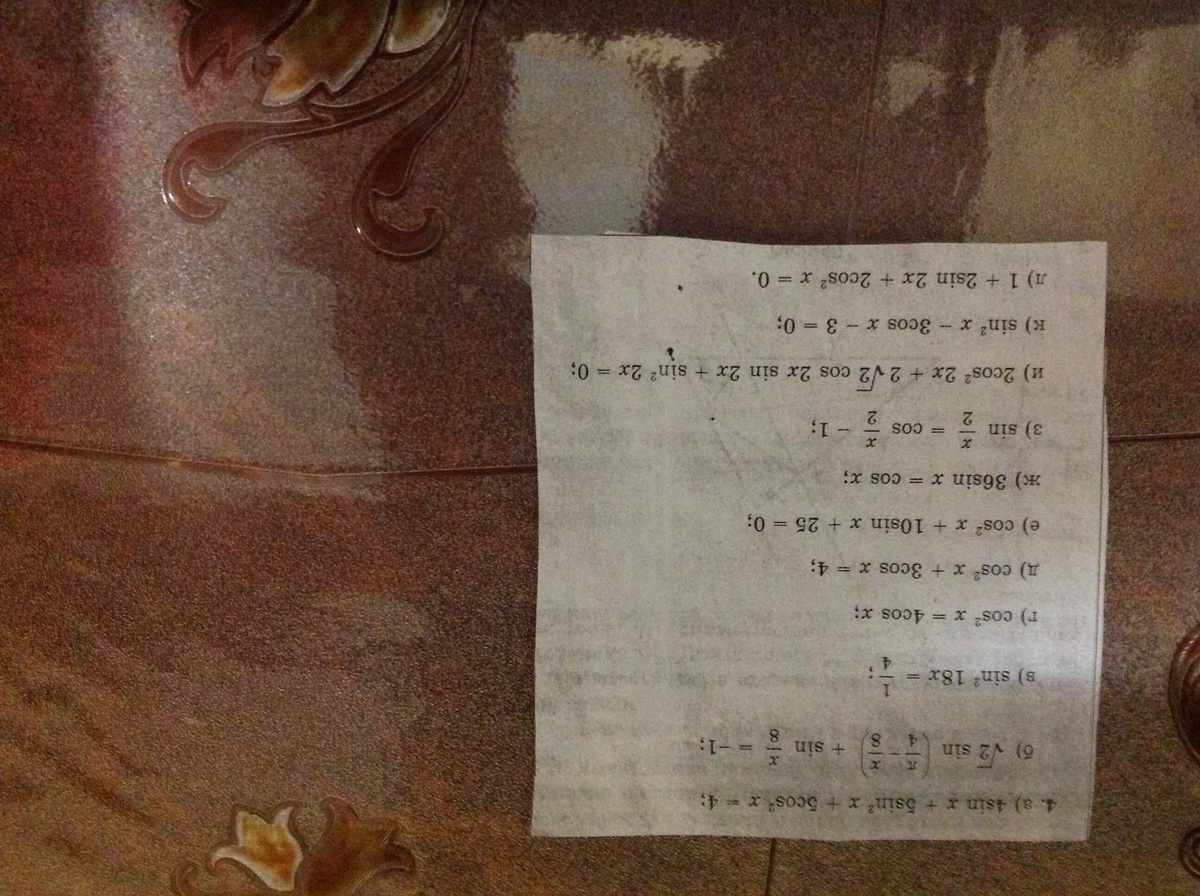 4. а) 4sin x + 5sin² x + 5cos² x = 4;
б) √2 sin (π/4 − x/8) + sin x/8 = −1;
в) sin² 18x = 1/4;
г) cos² x = 4cos x;
д) cos² x + 3cos x = 4;
е) cos² x + 10sin x + 25 = 0;
ж) 36sin x = cos x;
з) sin x/2 = cos x/2 − 1;
и) 2cos² 2x + 2√2 cos 2x sin 2x + sin² 2x = 0;
к) sin² x − 3cos x − 3 = 0;
л) 1 + 2sin 2x + 2cos² x = 0.